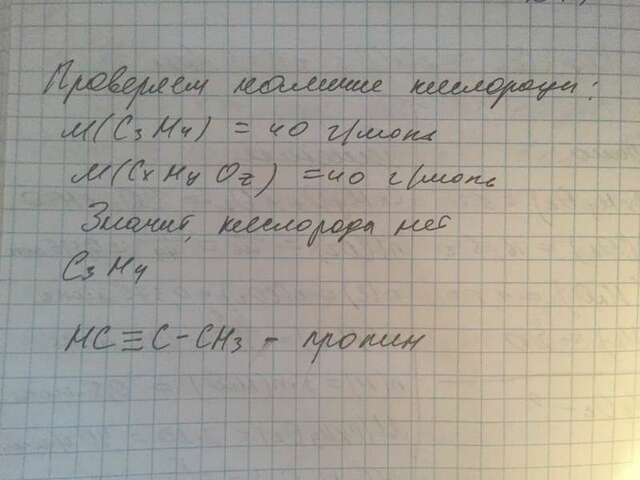 Проверяем наличие кислорода:
M(C₃H₄) = 40 г/моль
M(CxHyOz) = 40 г/моль
Значит, кислорода нет
C₃H₄
HC≡C-CH₃ - пропин